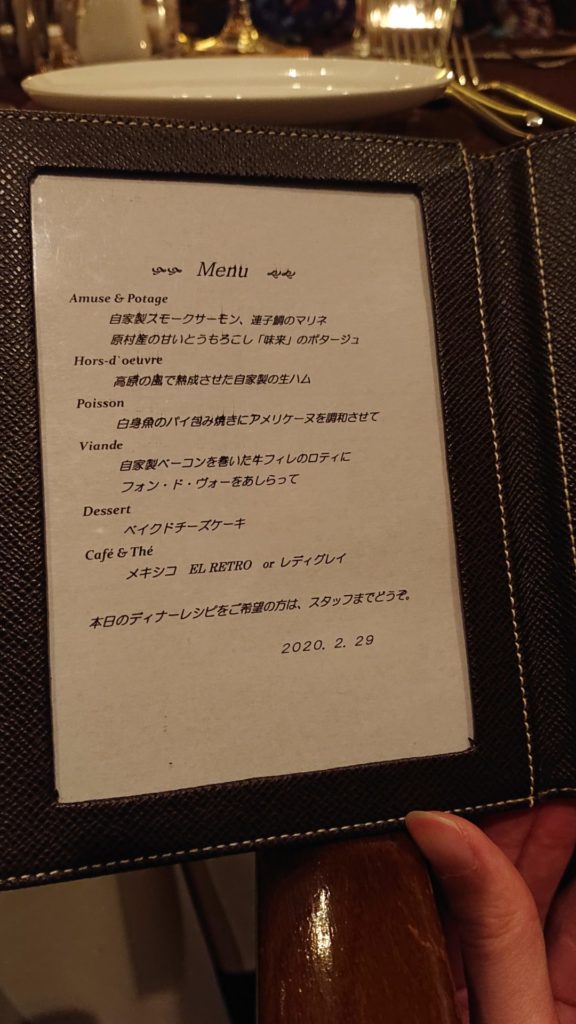 Menu
Amuse & Potage
自家製スモークサーモン、連子鯛のマリネ
原村産の甘いとうもろこし「味来」のポタージュ
Hors-d`oeuvre
高原の風で熟成させた自家製の生ハム
Poisson
白身魚のパイ包み焼きにアメリケーヌを調和させて
Viande
自家製ベーコンを巻いた牛フィレのロティに
フォン・ド・ヴォーをあしらって
Dessert
ベイクドチーズケーキ
Café & Thé
メキシコ EL RETRO or レディグレイ
本日のディナーレシピをご希望の方は、スタッフまでどうぞ。
2020. 2. 29